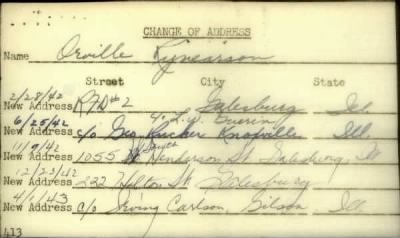 CHANGE OF ADDRESS
Name Orville Rynearson
Street City State
2/28/42
New Address RFD #2 Galesburg Ill.
6/25/42
New Address c/o Geo. Rucker Knoxville Ill.
11/9/42
New Address 1055 Henderson St. Galesburg, Ill
12/23/42
New Address 222 St Galesburg
4/1/43
New Address c/o Irving Carlson, Gilson Ill
413